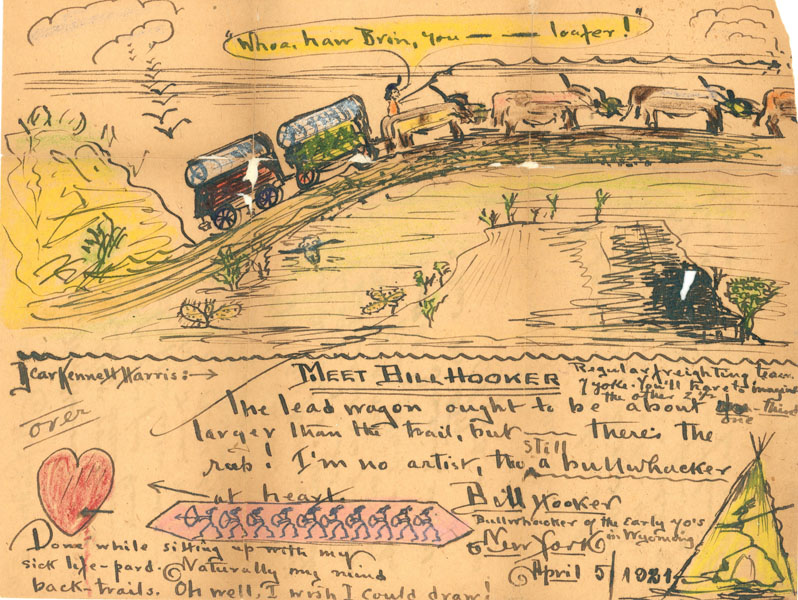 "Whoa, haw Brin, you — — loafer!"
Dear Kennett Harris:→
MEET BILL HOOKER
Regular freighting team.
7 yoke. You'll have to imagine
the other 2 1/2
over
The lead wagon ought to be about one-third
larger than the trail, but — there's the
rub! I'm no artist, tho still a bullwhacker
at heart.
Bill Hooker
Bullwhacker of the Early 70's
in Wyoming
New York
April 5/1921
Done while sitting up with my
sick life-pard. Naturally my mind
back-trails. Oh well, I wish I could draw!